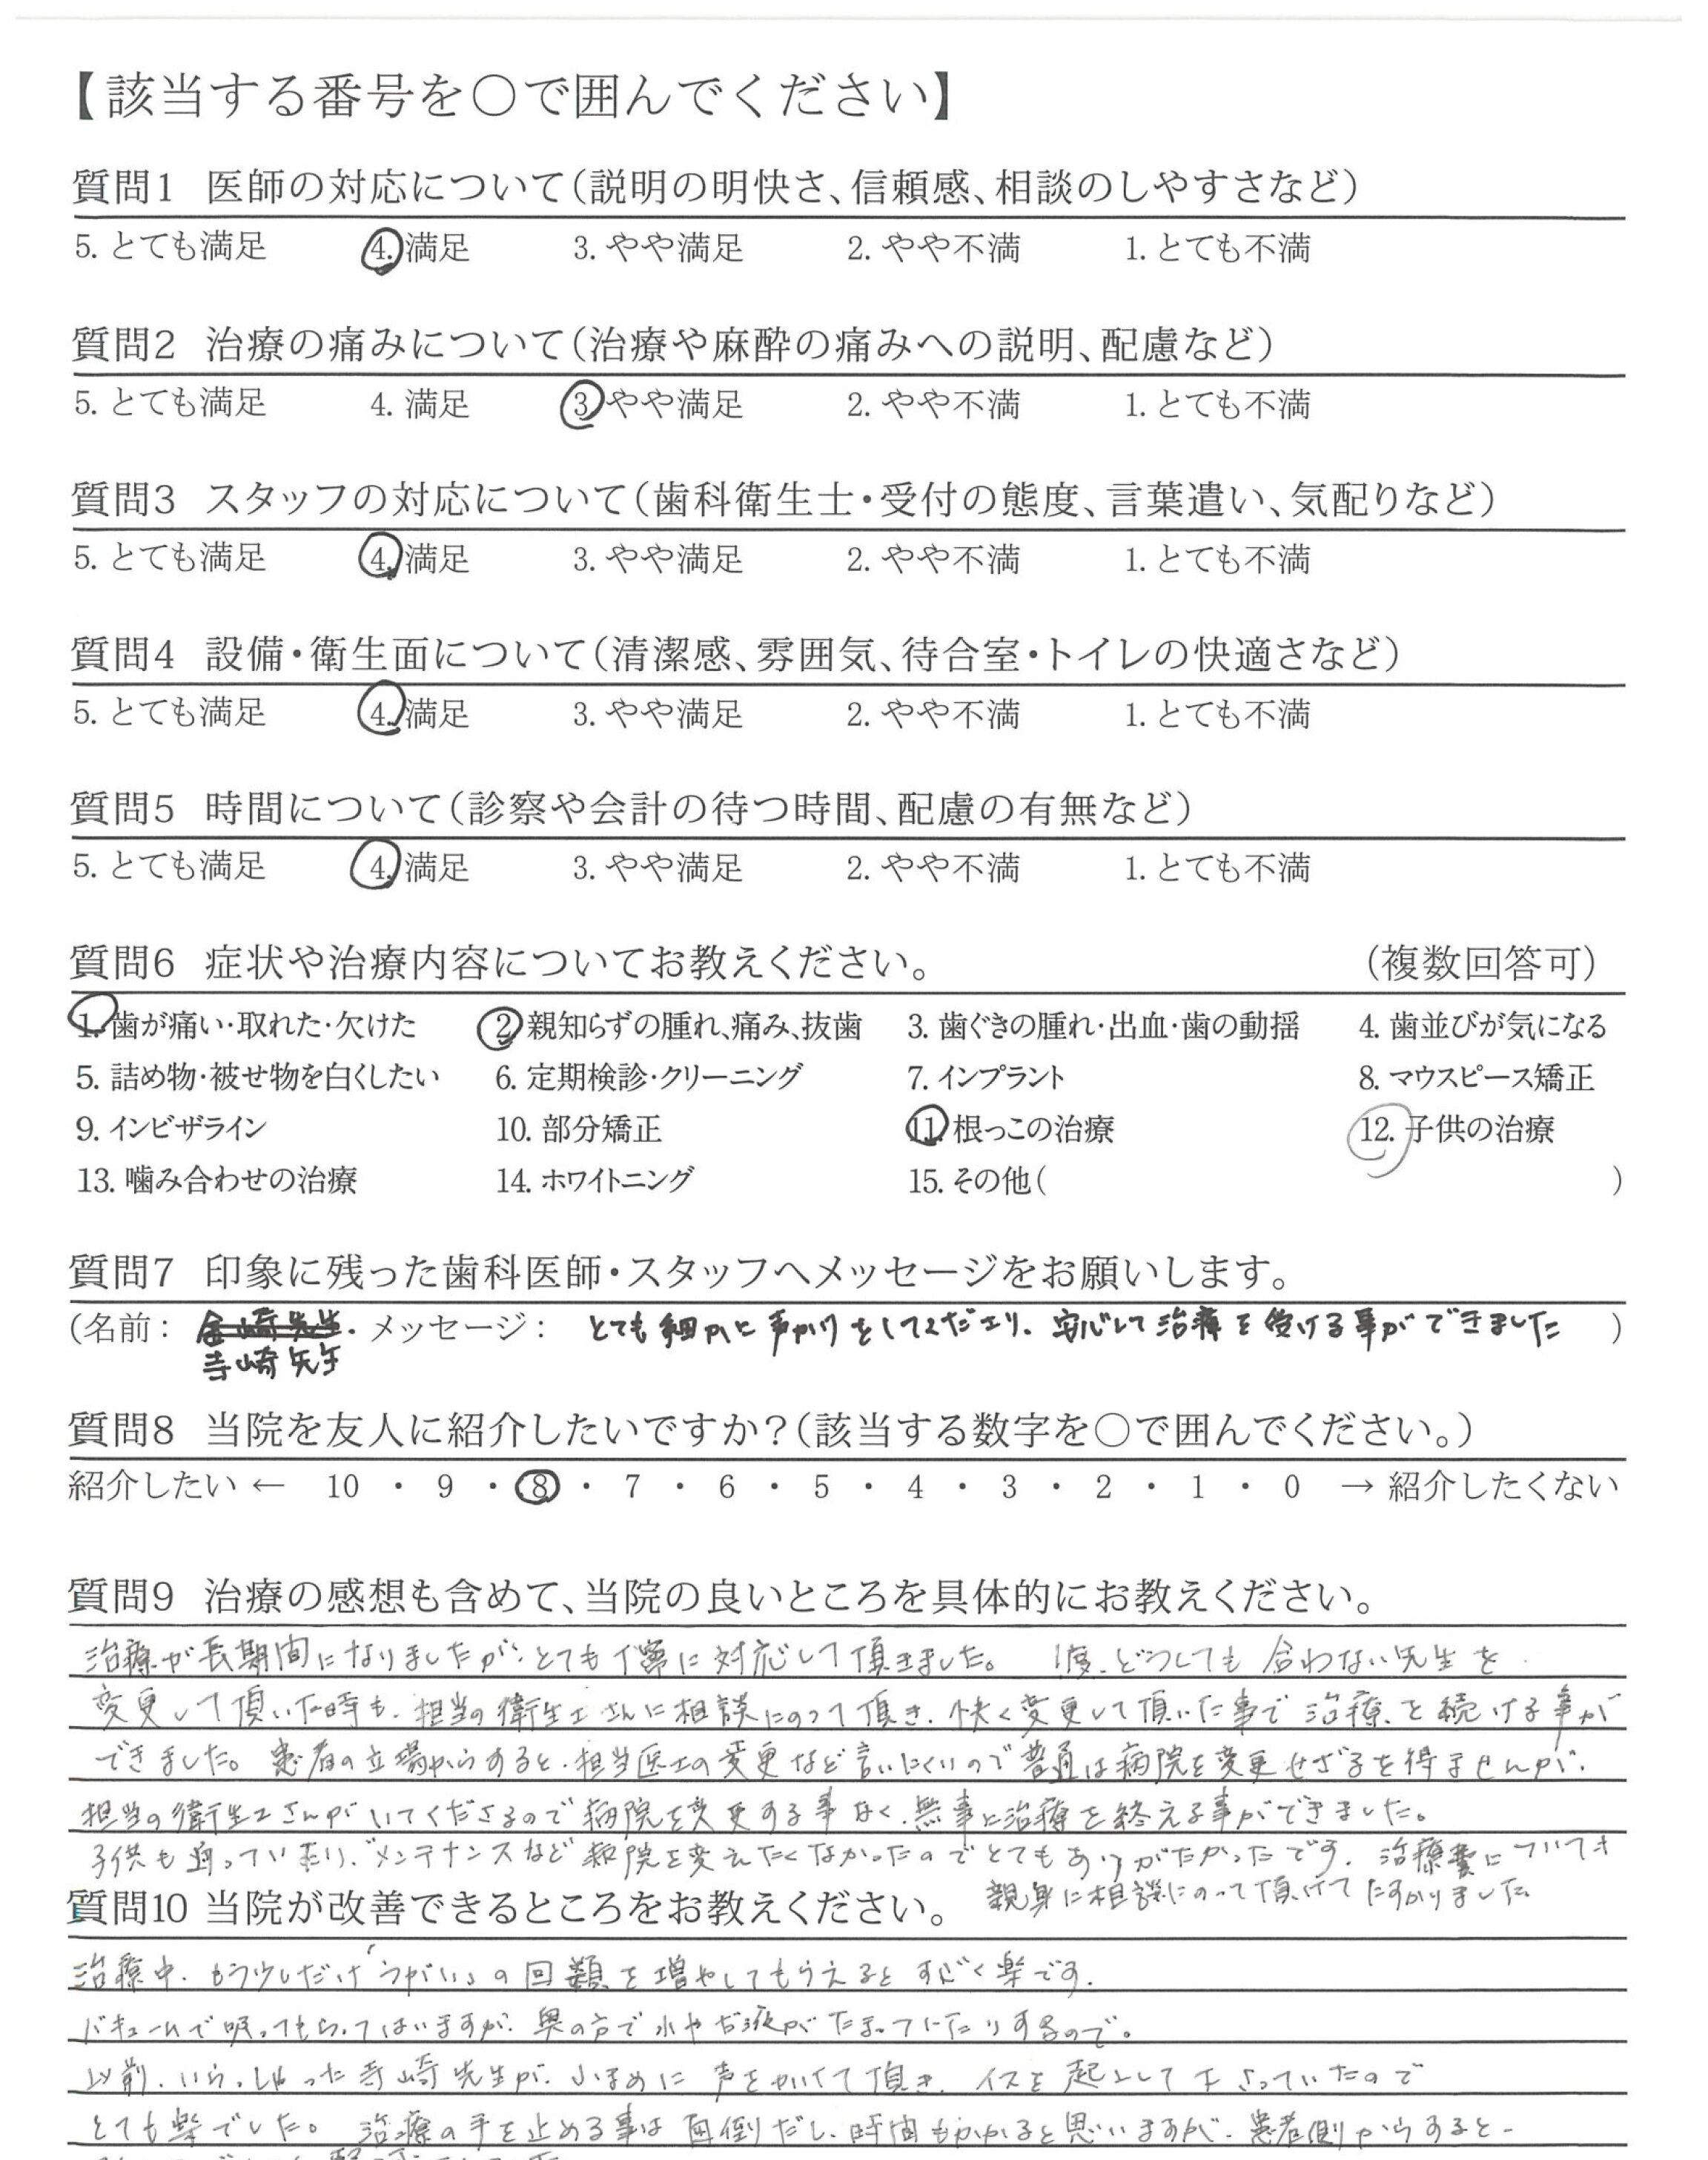 【該当する番号を〇で囲んでください】
質問1 医師の対応について(説明の明快さ、信頼感、相談のしやすさなど)
5. とても満足 4. 満足 3. やや満足 2. やや不満 1. とても不満
質問2 治療の痛みについて(治療や麻酔の痛みへの説明、配慮など)
5. とても満足 4. 満足 3 やや満足 2. やや不満 1. とても不満
質問3 スタッフの対応について(歯科衛生士・受付の態度、言葉遣い、気配りなど)
5. とても満足 4. 満足 3. やや満足 2. やや不満 1. とても不満
質問4 設備・衛生面について(清潔感、雰囲気、待合室・トイレの快適さなど)
5. とても満足 4. 満足 3. やや満足 2. やや不満 1. とても不満
質問5 時間について(診察や会計の待つ時間、配慮の有無など)
5. とても満足 4. 満足 3. やや満足 2. やや不満 1. とても不満
質問6 症状や治療内容についてお教えください。 (複数回答可)
1. 歯が痛い・取れた・欠けた 2 親知らずの腫れ、痛み、抜歯 3. 歯ぐきの腫れ・出血・歯の動揺 4. 歯並びが気になる
5. 詰め物・被せ物を白くしたい 6. 定期検診・クリーニング 7. インプラント 8. マウスピース矯正
9. インビザライン 10. 部分矯正 11. 根っこの治療 12. 子供の治療
13. 噛み合わせの治療 14. ホワイトニング 15. その他( )
質問7 印象に残った歯科医師・スタッフへメッセージをお願いします。
(名前: メッセージ: とても細かに声かけをしてくださり、安心して治療を受ける事ができました )
寺崎先生
質問8 当院を友人に紹介したいですか?(該当する数字を〇で囲んでください。)
紹介したい ← 10 ・ 9 ・ 8 ・ 7 ・ 6 ・ 5 ・ 4 ・ 3 ・ 2 ・ 1 ・ 0 → 紹介したくない
質問9 治療の感想も含めて、当院の良いところを具体的にお教えください。
治療が長期間になりましたが、とても丁寧に対応して頂きました。 1度、どうしても合わない先生を
変更して頂いた時も、担当の衛生士さんに相談にのって頂き、快く変更して頂いた事で治療を続ける事が
できました。患者の立場からすると、担当医士の変更など言いにくいので普通は病院を変更せざるを得ませんが、
担当の衛生士さんがいてくださるので病院を変更する事なく、無事に治療を終える事ができました。
子供も通っていたり、メンテナンスなど病院を変えたくなかったのでとてもありがたかったです。治療費についても
親身に相談にのって頂けてたすかりました
質問10 当院が改善できるところをお教えください。
治療中、もう少しだけ「うがい」の回数を増やしてもらえるとすごく楽です。
バキュームで吸ってもらってはいますが、奥の方で水やだ液がたまっていたりするので。
以前、いらっしゃった寺崎先生が、小まめに声をかけて頂き、イスを起こして下さっていたので
とても楽でした。治療の手を止める事は面倒だし、時間もかかると思いますが、患者側からすると、